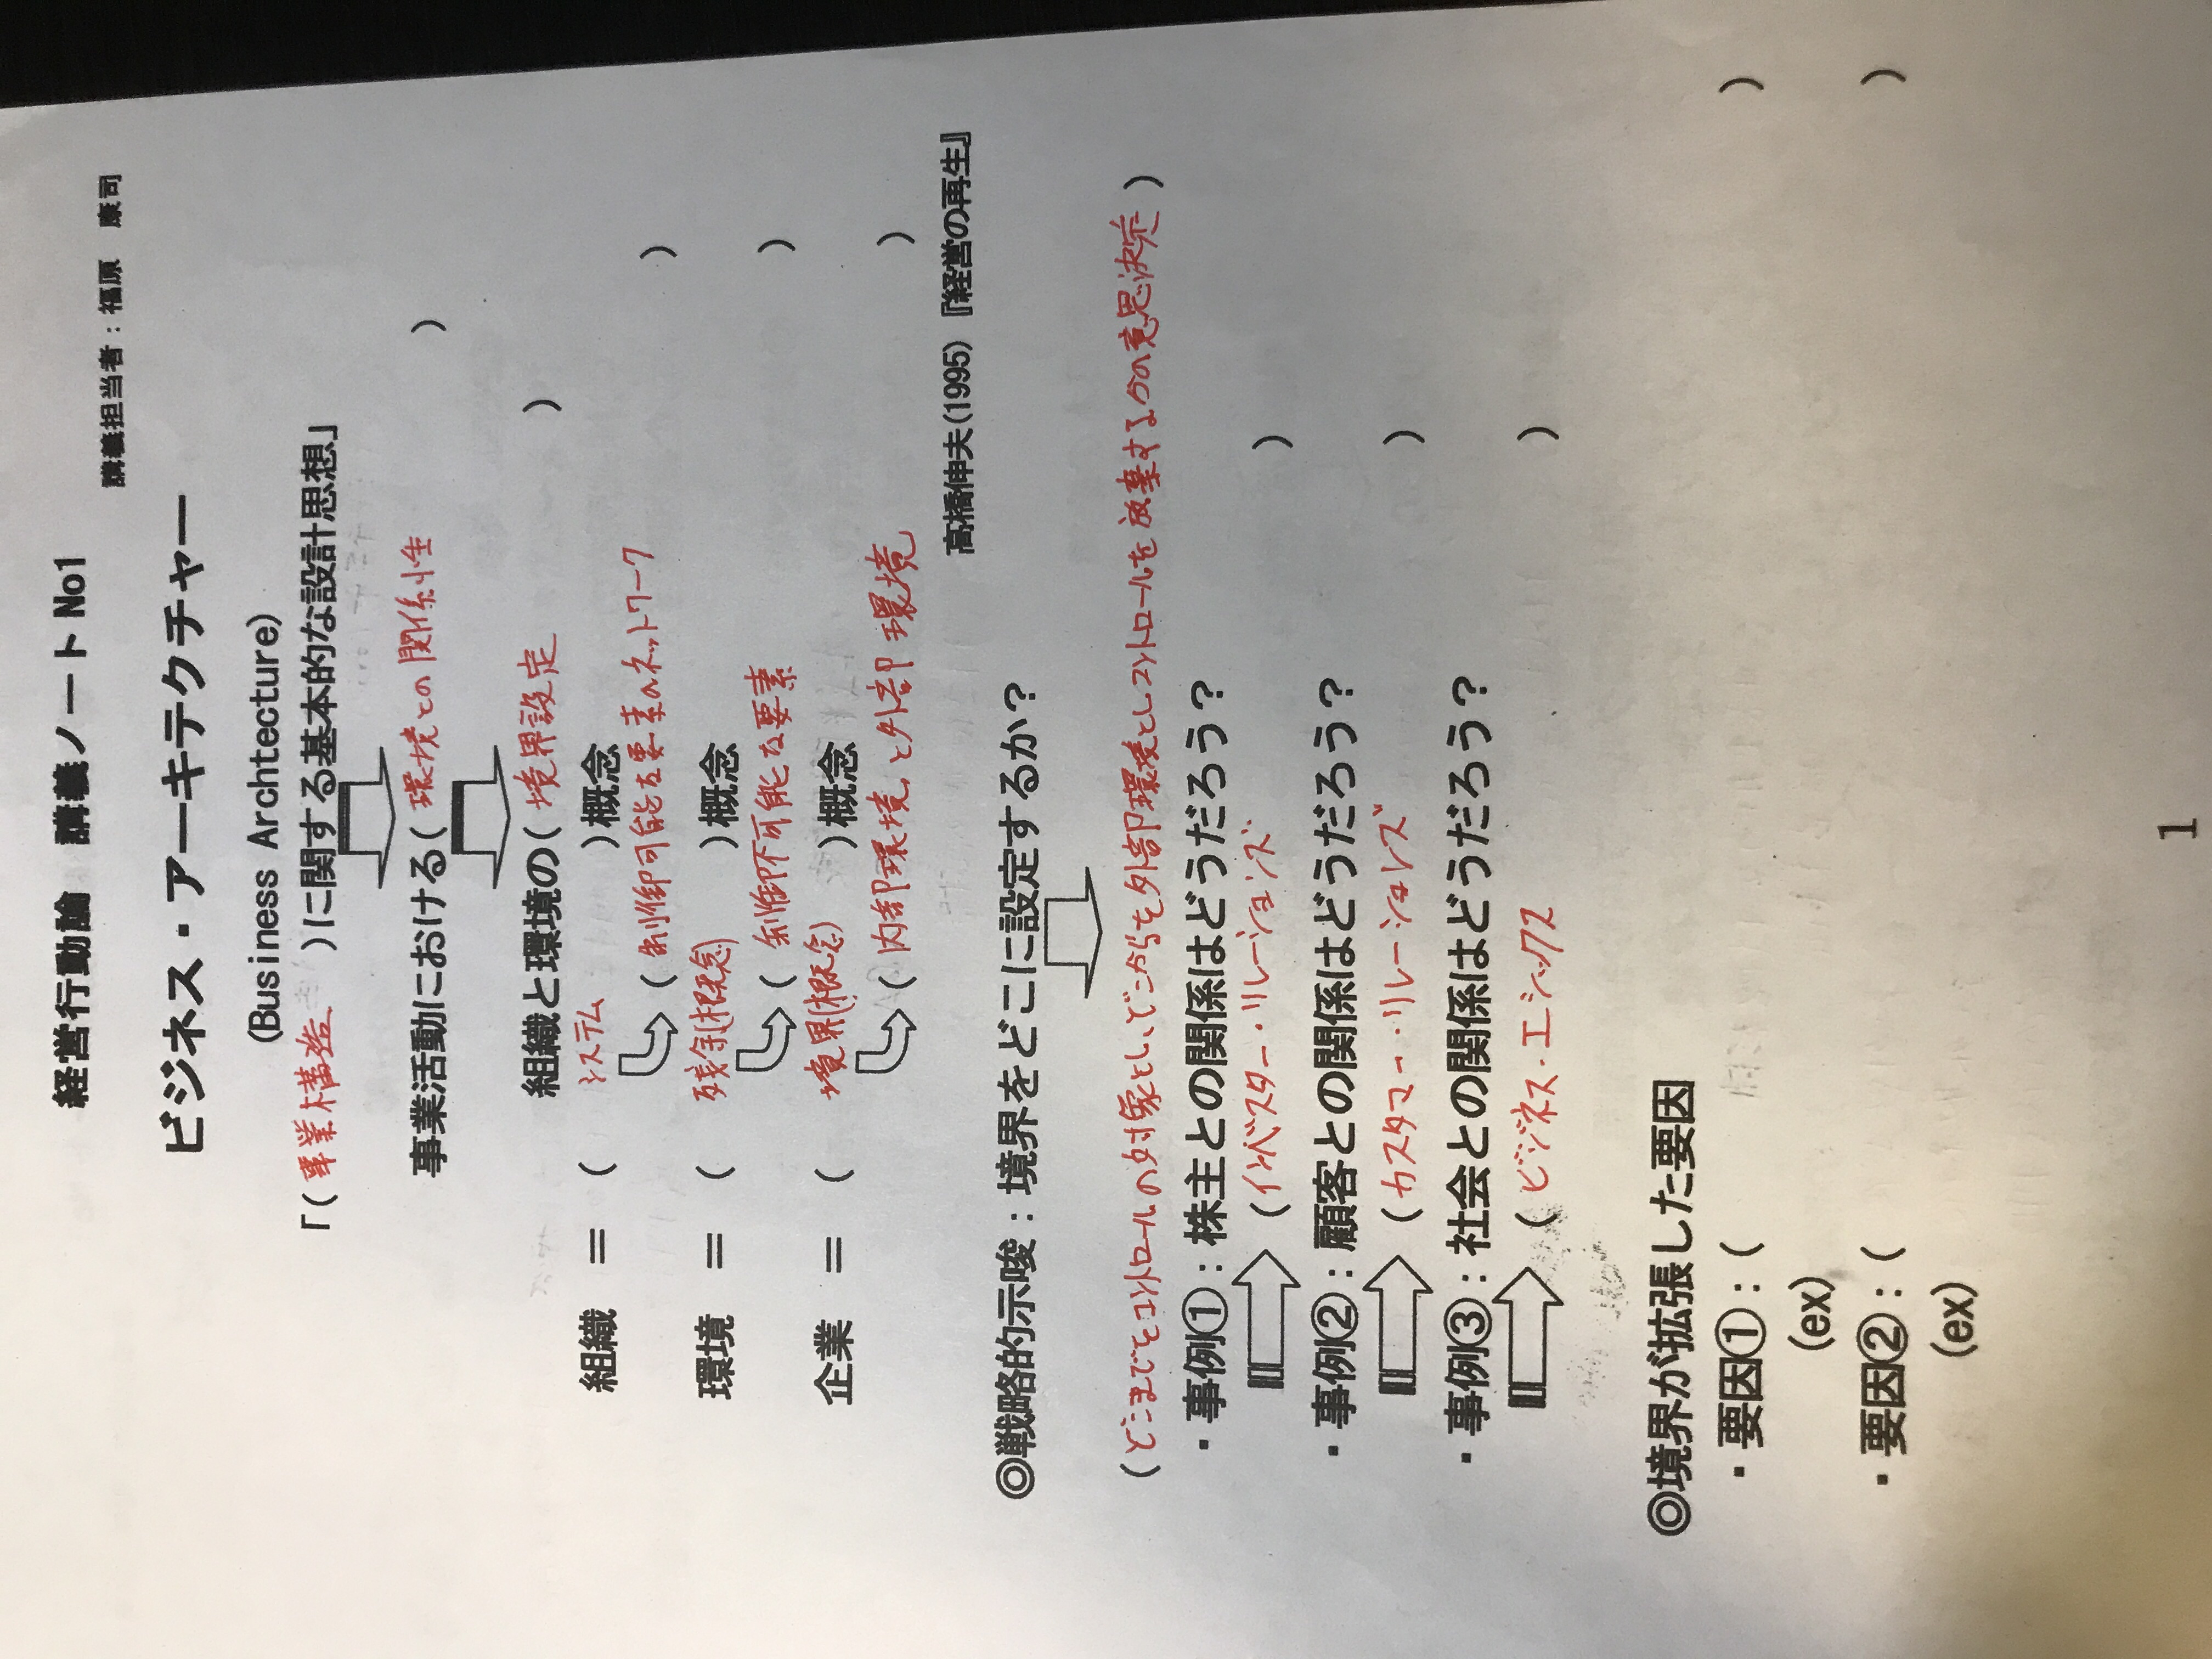 経営行動論　講義ノート No1
講義担当者：福原　康司
ビジネス・アーキテクチャー
(Business Archtecture)
「(事業構造)に関する基本的な設計思想」
事業活動における(環境との関係性)
組織と環境の(境界設定)
組織　＝　(システム)概念
(制御可能な要素のネットワーク)
環境　＝　(残余(概念))概念
(制御不可能な要素)
企業　＝　(境界(概念))概念
(内部環境と外部環境)
高橋伸夫(1995)『経営の再生』
◎戦略的示唆：境界をどこに設定するか？
(どこまでをコントロールの対象とし、どこからを外部環境としコントロールを放棄するかの意思決定)
・事例①：株主との関係はどうだろう？
(インベスター・リレーションズ)
・事例②：顧客との関係はどうだろう？
(カスタマー・リレーションズ)
・事例③：社会との関係はどうだろう？
(ビジネス・エシックス)
◎境界が拡張した要因
・要因①：(　)
(ex)
・要因②：(　)
(ex)
1